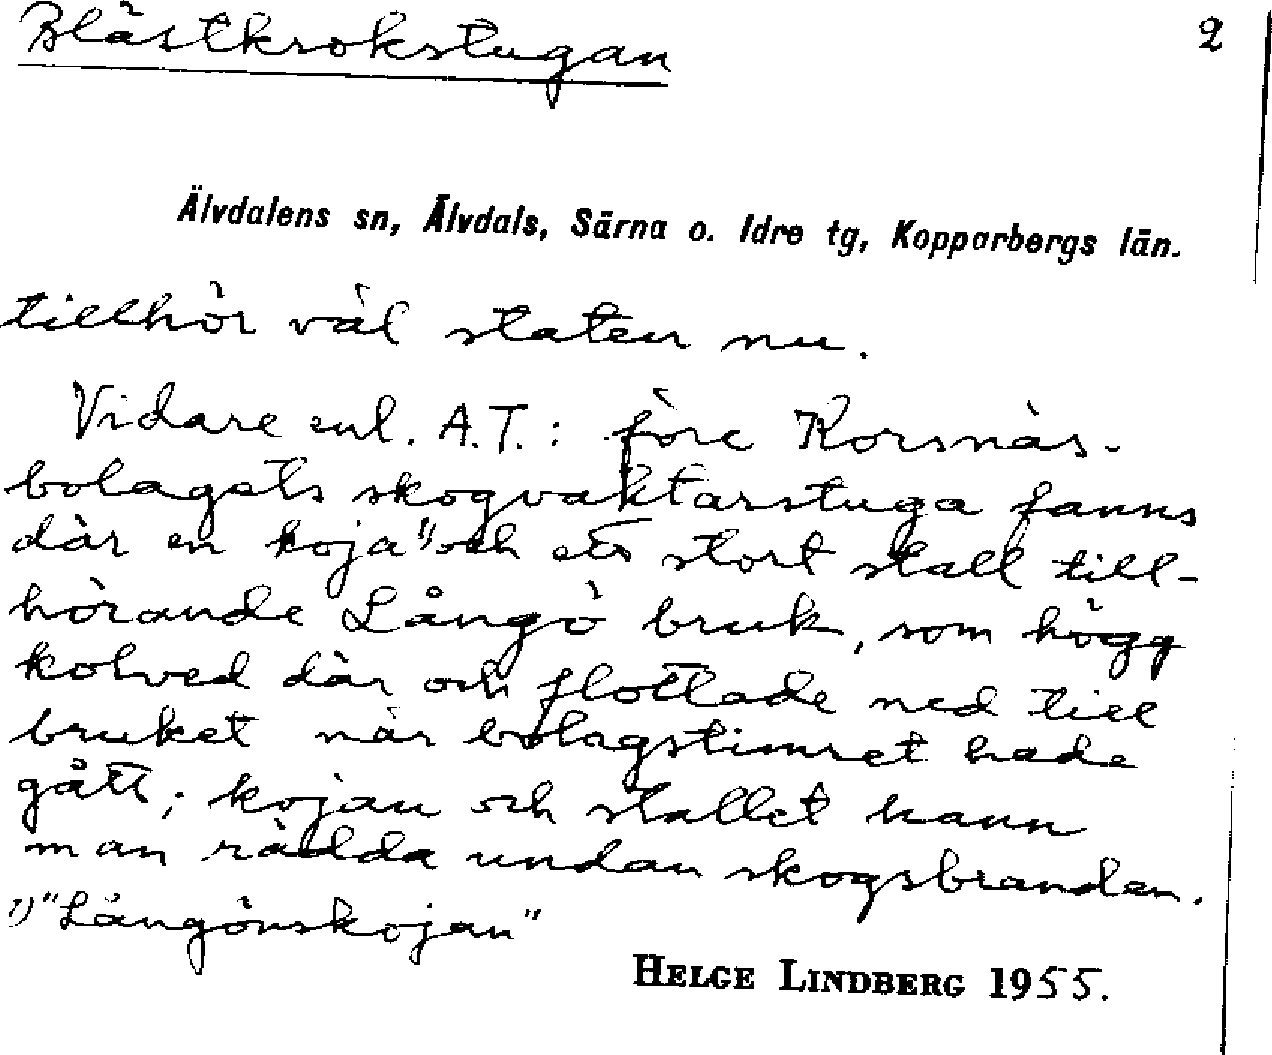 Blästkrokstugan 2
Älvdalens sn, Älvdals, Särna o. Idre tg, Kopparbergs län.
tillhör väl staten nu.
Vidare enl. A.T.: före Korsnäs-
bolagets skogvaktarstuga fanns
där en koja 1) och ett stort stall till-
hörande Långö bruk, som högg
kolved där och flottade ned till
bruket när bolagstimret hade
gått; kojan och stallet hann
man rädda undan skogsbranden.
1) "Långönskojan"
HELGE LINDBERG 1955.